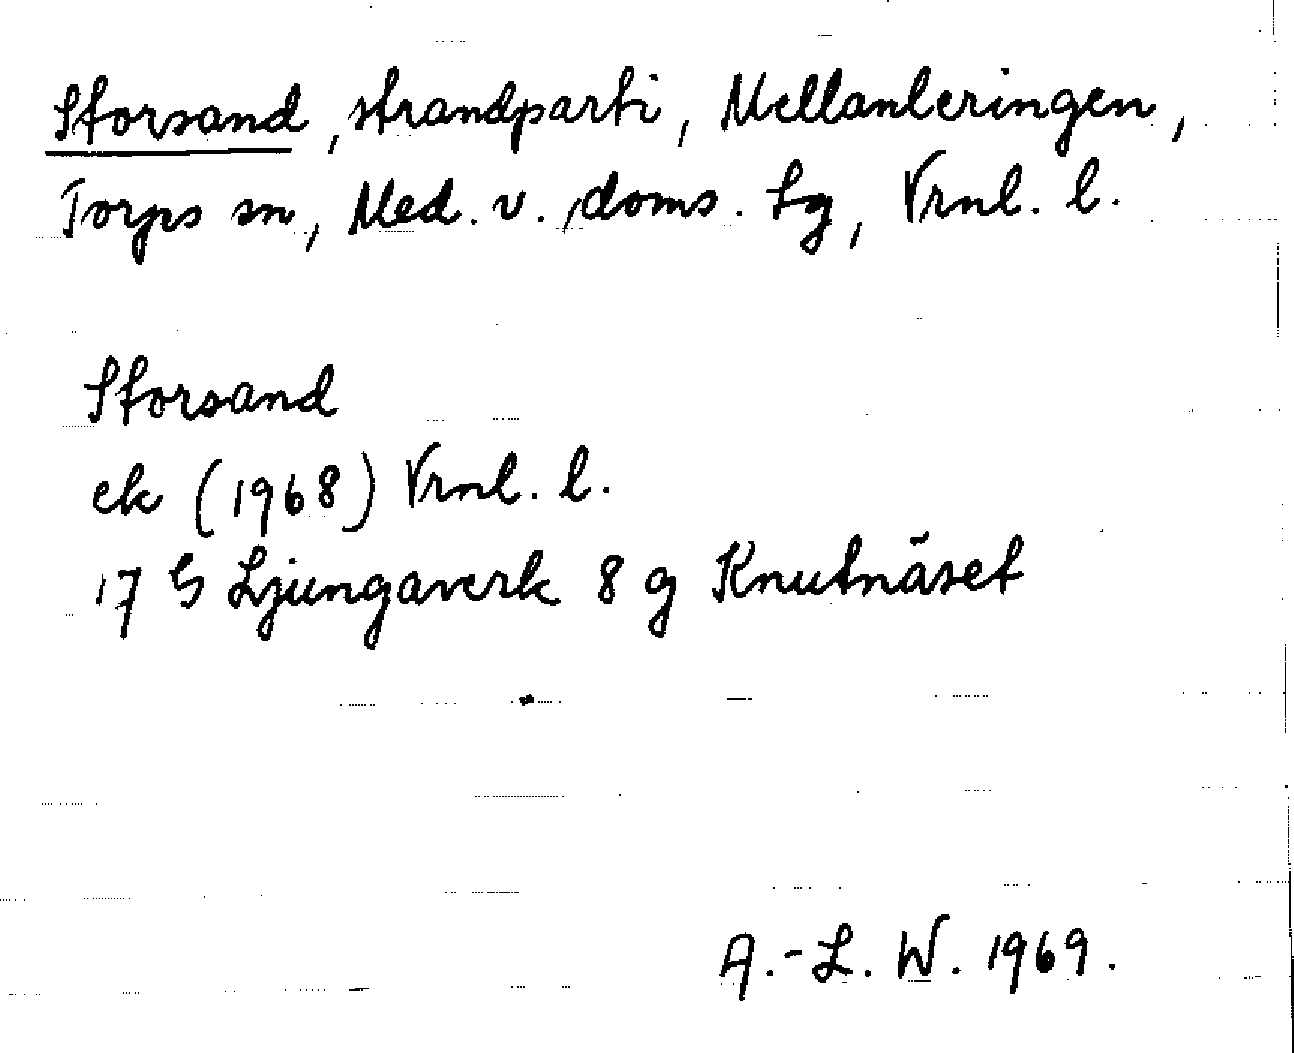 Storsand, strandparti, Mellanleringen,
Torps sn, Med. v. doms. tg, Vrnl. l.
Storsand
ek (1968) Vrnl. l.
17 G Ljungaverk 8 g Knutnäset
A.-L. W. 1969.